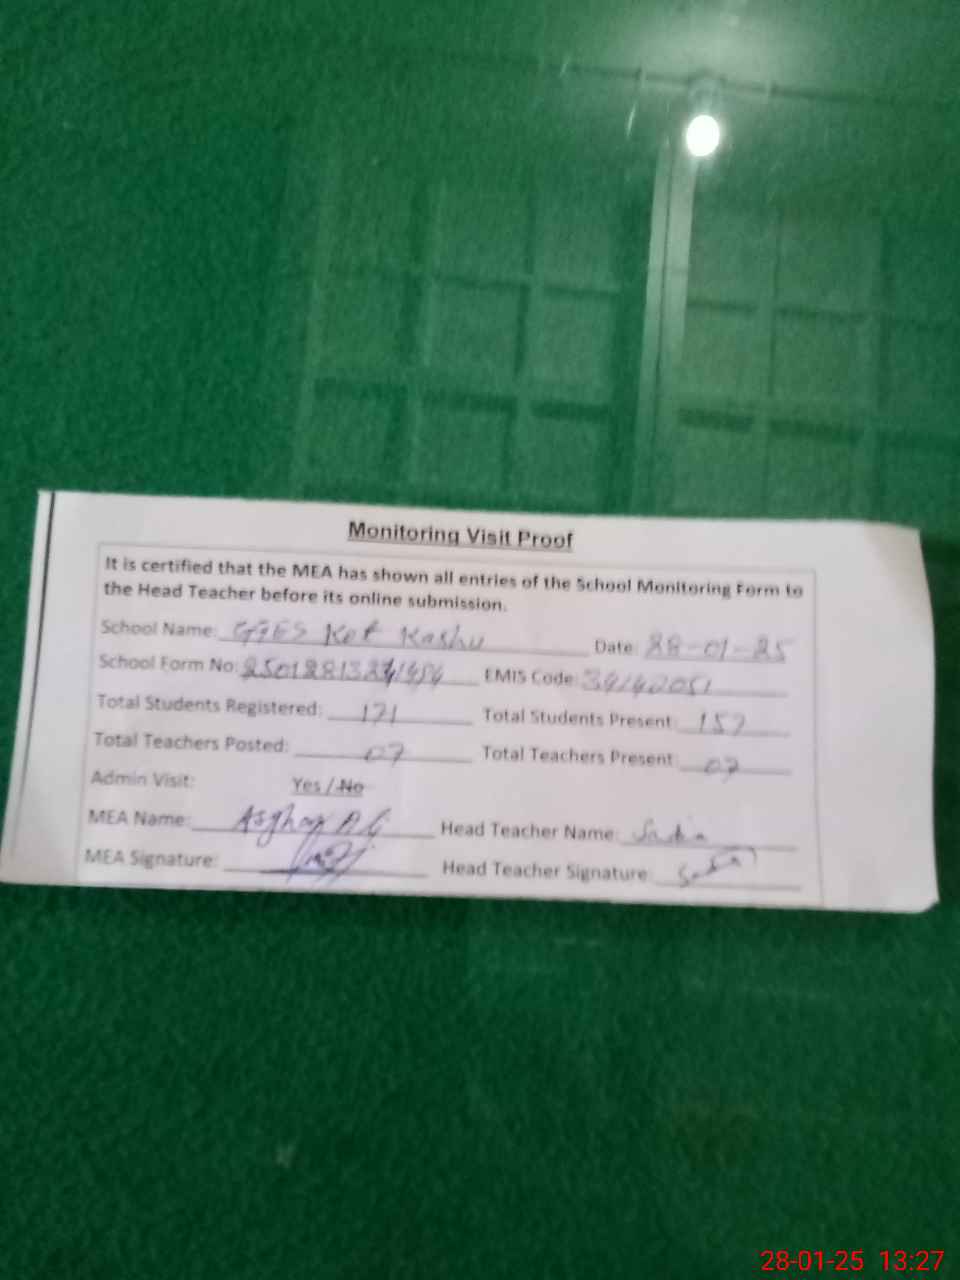 Monitoring Visit Proof
It is certified that the MEA has shown all entries of the School Monitoring Form to
the Head Teacher before its online submission.
School Name: GGES Kot Kashu Date: 28-01-25
School Form No: EMIS Code: 39140051
Total Students Registered: 171 Total Students Present: 157
Total Teachers Posted: 07 Total Teachers Present: 07
Admin Visit: Yes / No
MEA Name: Asghar Ali Head Teacher Name: Sadia
MEA Signature: Head Teacher Signature: Sadia
28-01-25 13:27